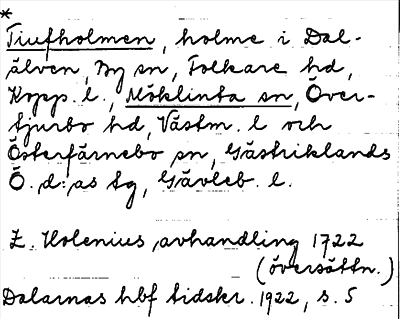 *
Tiufholmen, holme i Dal-
älven, By sn, Folkare hd,
Kopp. l., Möklinta sn, Över-
tjurbo hd, Västm. l och
Österfärnebo sn, Gästriklands
Ö. d:as tg, Gävleb. l.
Z. Holenius, avhandling 1722
(översättn.)
Dalarnas hbf tidskr. 1922, s. 5